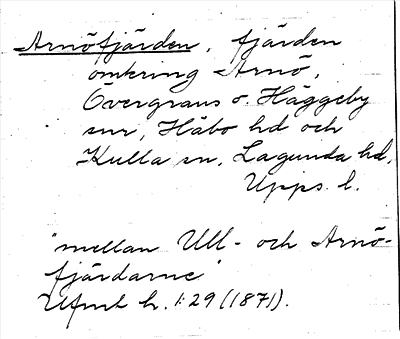 Arnöfjärden, fjärden
omkring Arnö,
Övergrans o. Häggeby
snr, Håbo hd och
Kulla sn, Lagunda hd,
Upps. l.
"mellan Ull- och Arnö-
fjärdarne"
Ufmt h. 1:29 (1871).